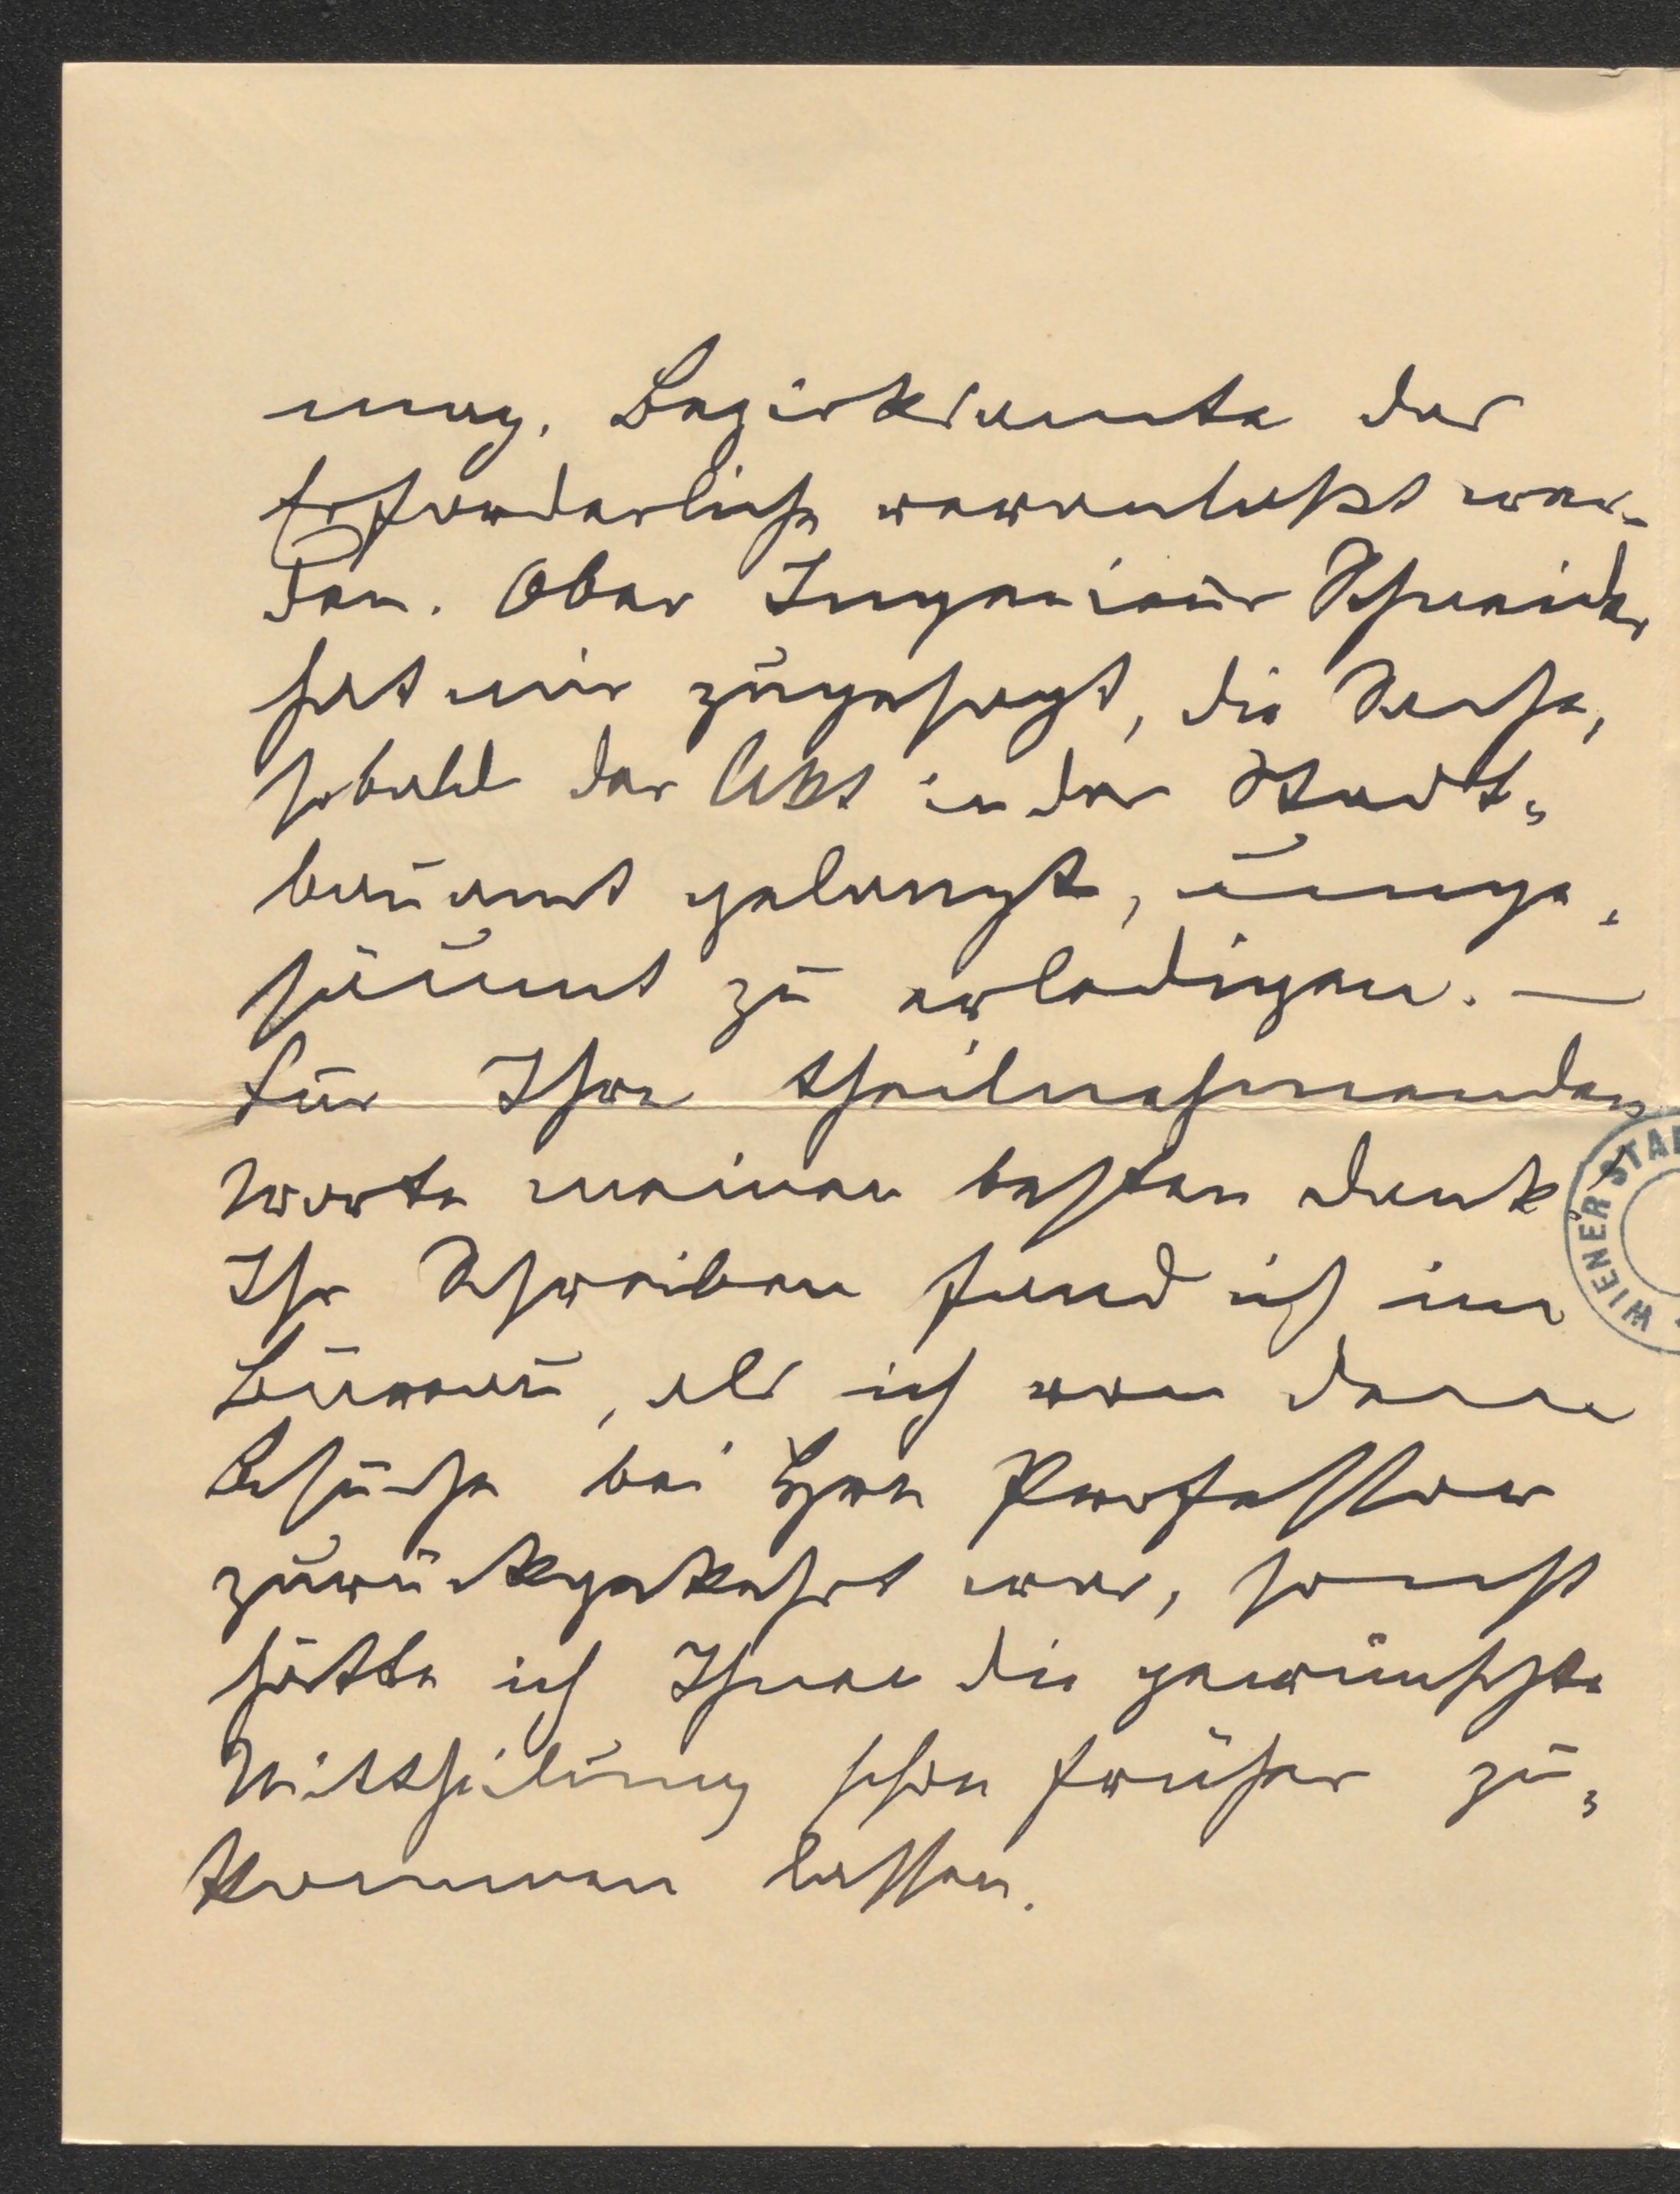 mag. Bezirksamte das
Erforderliche veranlaßt wer-
den. Ober Ingenieur Schneider
hat mir zugesagt, die Sache,
sobald der Akt in das Stadt-
bauamt gelangt, unge-
säumt zu erledigen. —
Für Ihre theilnehmenden
Worte meinen besten Dank.
Ihr Schreiben fand ich im
Bureau, als ich von dem
Besuche bei Hrn Professor
zurückgekehrt war, sonst
hätte ich Ihnen die gewünschte
Mittheilung schon früher zu-
kommen lassen.
WIENER STA